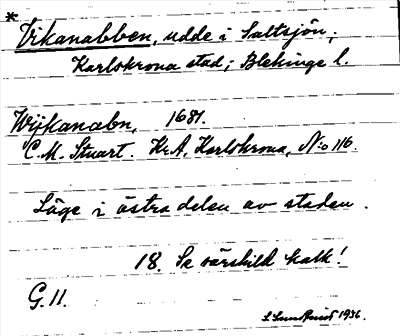 *
Vikanabben, udde i Saltsjön,
Karlskrona stad; Blekinge l.
Wijkanabn, 1681.
C.M. Stuart. Kr.A. Karlskrona, N:o 116.
Läge i östra delen av staden.
18. Se särskild kalk!
G. 11.
1936.